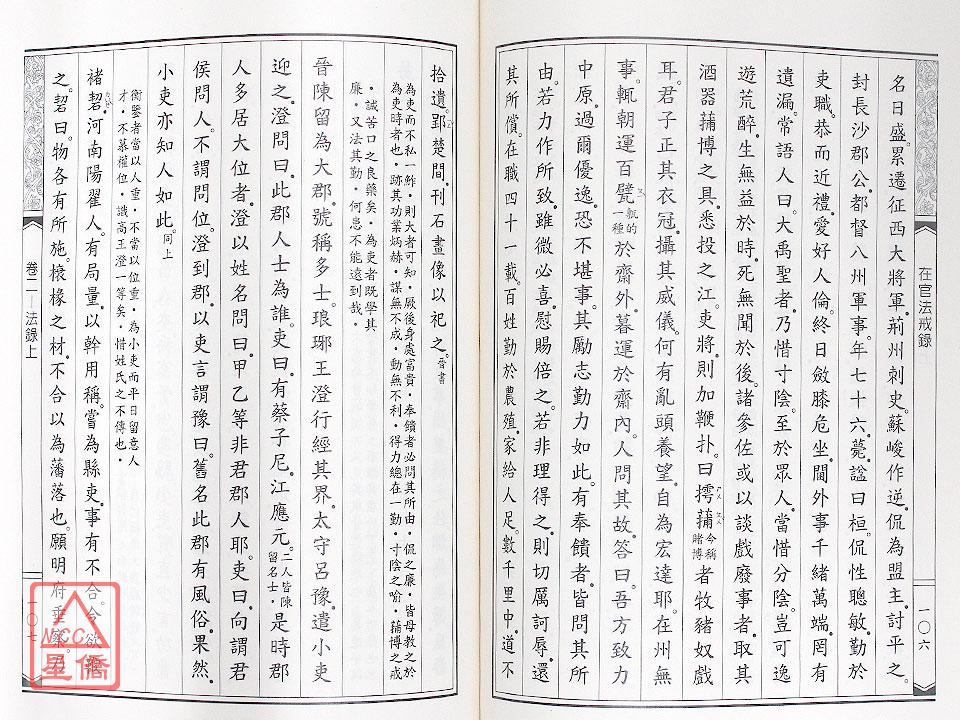 在官法戒錄
一〇六
名日盛。累遷征西大將軍。荊州刺史。蘇峻作逆。侃為盟主。討平之。
封長沙郡公。都督八州軍事。年七十六。薨。諡曰桓。侃性聰敏。勤於
吏職。恭而近禮。愛好人倫。終日斂膝危坐。閫外事千緒萬端。罔有
遺漏。常語人曰。大禹聖者。乃惜寸陰。至於眾人。當惜分陰。豈可逸
遊荒醉。生無益於時。死無聞於後。諸參佐或以談戲廢事者。取其
酒器蒱博之具。悉投之江。吏將。則加鞭扑。曰。摴蒱今稱賭博者牧豬奴戲
耳。君子正其衣冠。攝其威儀。何有亂頭養望。自為宏達耶。在州無
事。輒朝運百甓瓴的一種於齋外。暮運於齋內。人問其故。答曰。吾方致力
中原。過爾優逸。恐不堪事。其勵志勤力如此。有奉饋者。皆問其所
由。若力作所致。雖微必喜。慰賜倍之。若非理得之。則切厲訶辱。還
其所償。在職四十一載。百姓勤於農殖。家給人足。數千里中。道不
拾遺。郢楚間。刊石畫像以祀之。晉書
為吏而不私一鮓,則大者可知,厥後身處富貴,奉饋者必問其所由,侃之廉,皆母教之於
為吏時者也,跡其功業炳赫,謀無不成,動無不利,得力總在一勤,寸陰之喻,蒱博之戒
,誠苦口之良藥矣,為吏者既學其
廉,又法其勤,何患不能遠到哉,
晉陳留為大郡。號稱多士。琅琊王澄行經其界。太守呂豫。遣小吏
迎之。澄問曰。此郡人士為誰。吏曰。有蔡子尼。江應元。二人皆陳留名士,是時郡
人多居大位者。澄以姓名問曰。甲乙等非君郡人耶。吏曰。向謂君
侯問人。不謂問位。澄到郡。以吏言謂豫曰。舊名此郡有風俗。果然
小吏亦知人如此。同上
衡鑒者當以人重,不當以位重,為小吏而平日留意人
才,不慕權位,識高王澄一等矣,惜姓氏之不傳也,
褚䂮。河南陽翟人。有局量。以幹用稱。嘗為縣吏。事有不合。令欲
之。䂮曰。物各有所施。榱椽之材。不合以為藩落也。願明府垂察。乃
卷二—法錄上
一〇七
NCC
星僑